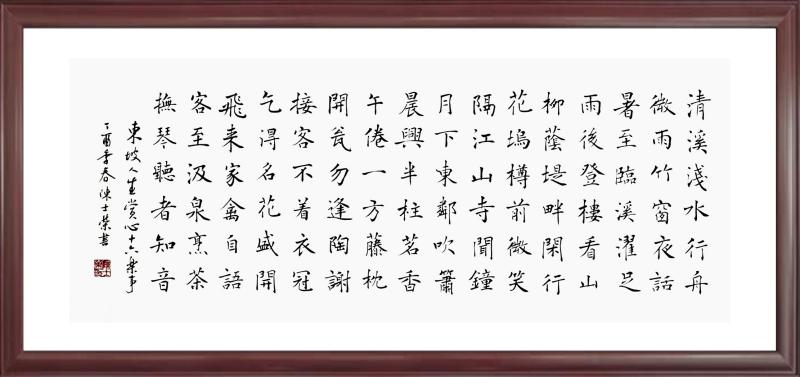 清溪淺水行舟
微雨竹窗夜話
暑至臨溪濯足
雨後登樓看山
柳蔭堤畔閑行
花塢樽前微笑
隔江山寺聞鐘
月下東鄰吹簫
晨興半柱茗香
午倦一方藤枕
開瓮勿逢陶謝
接客不着衣冠
乞得名花盛開
飛来家禽自語
客至汲泉烹茶
撫琴聽者知音
東坡人生賞心十六樂事
丁酉季春陳士榮書